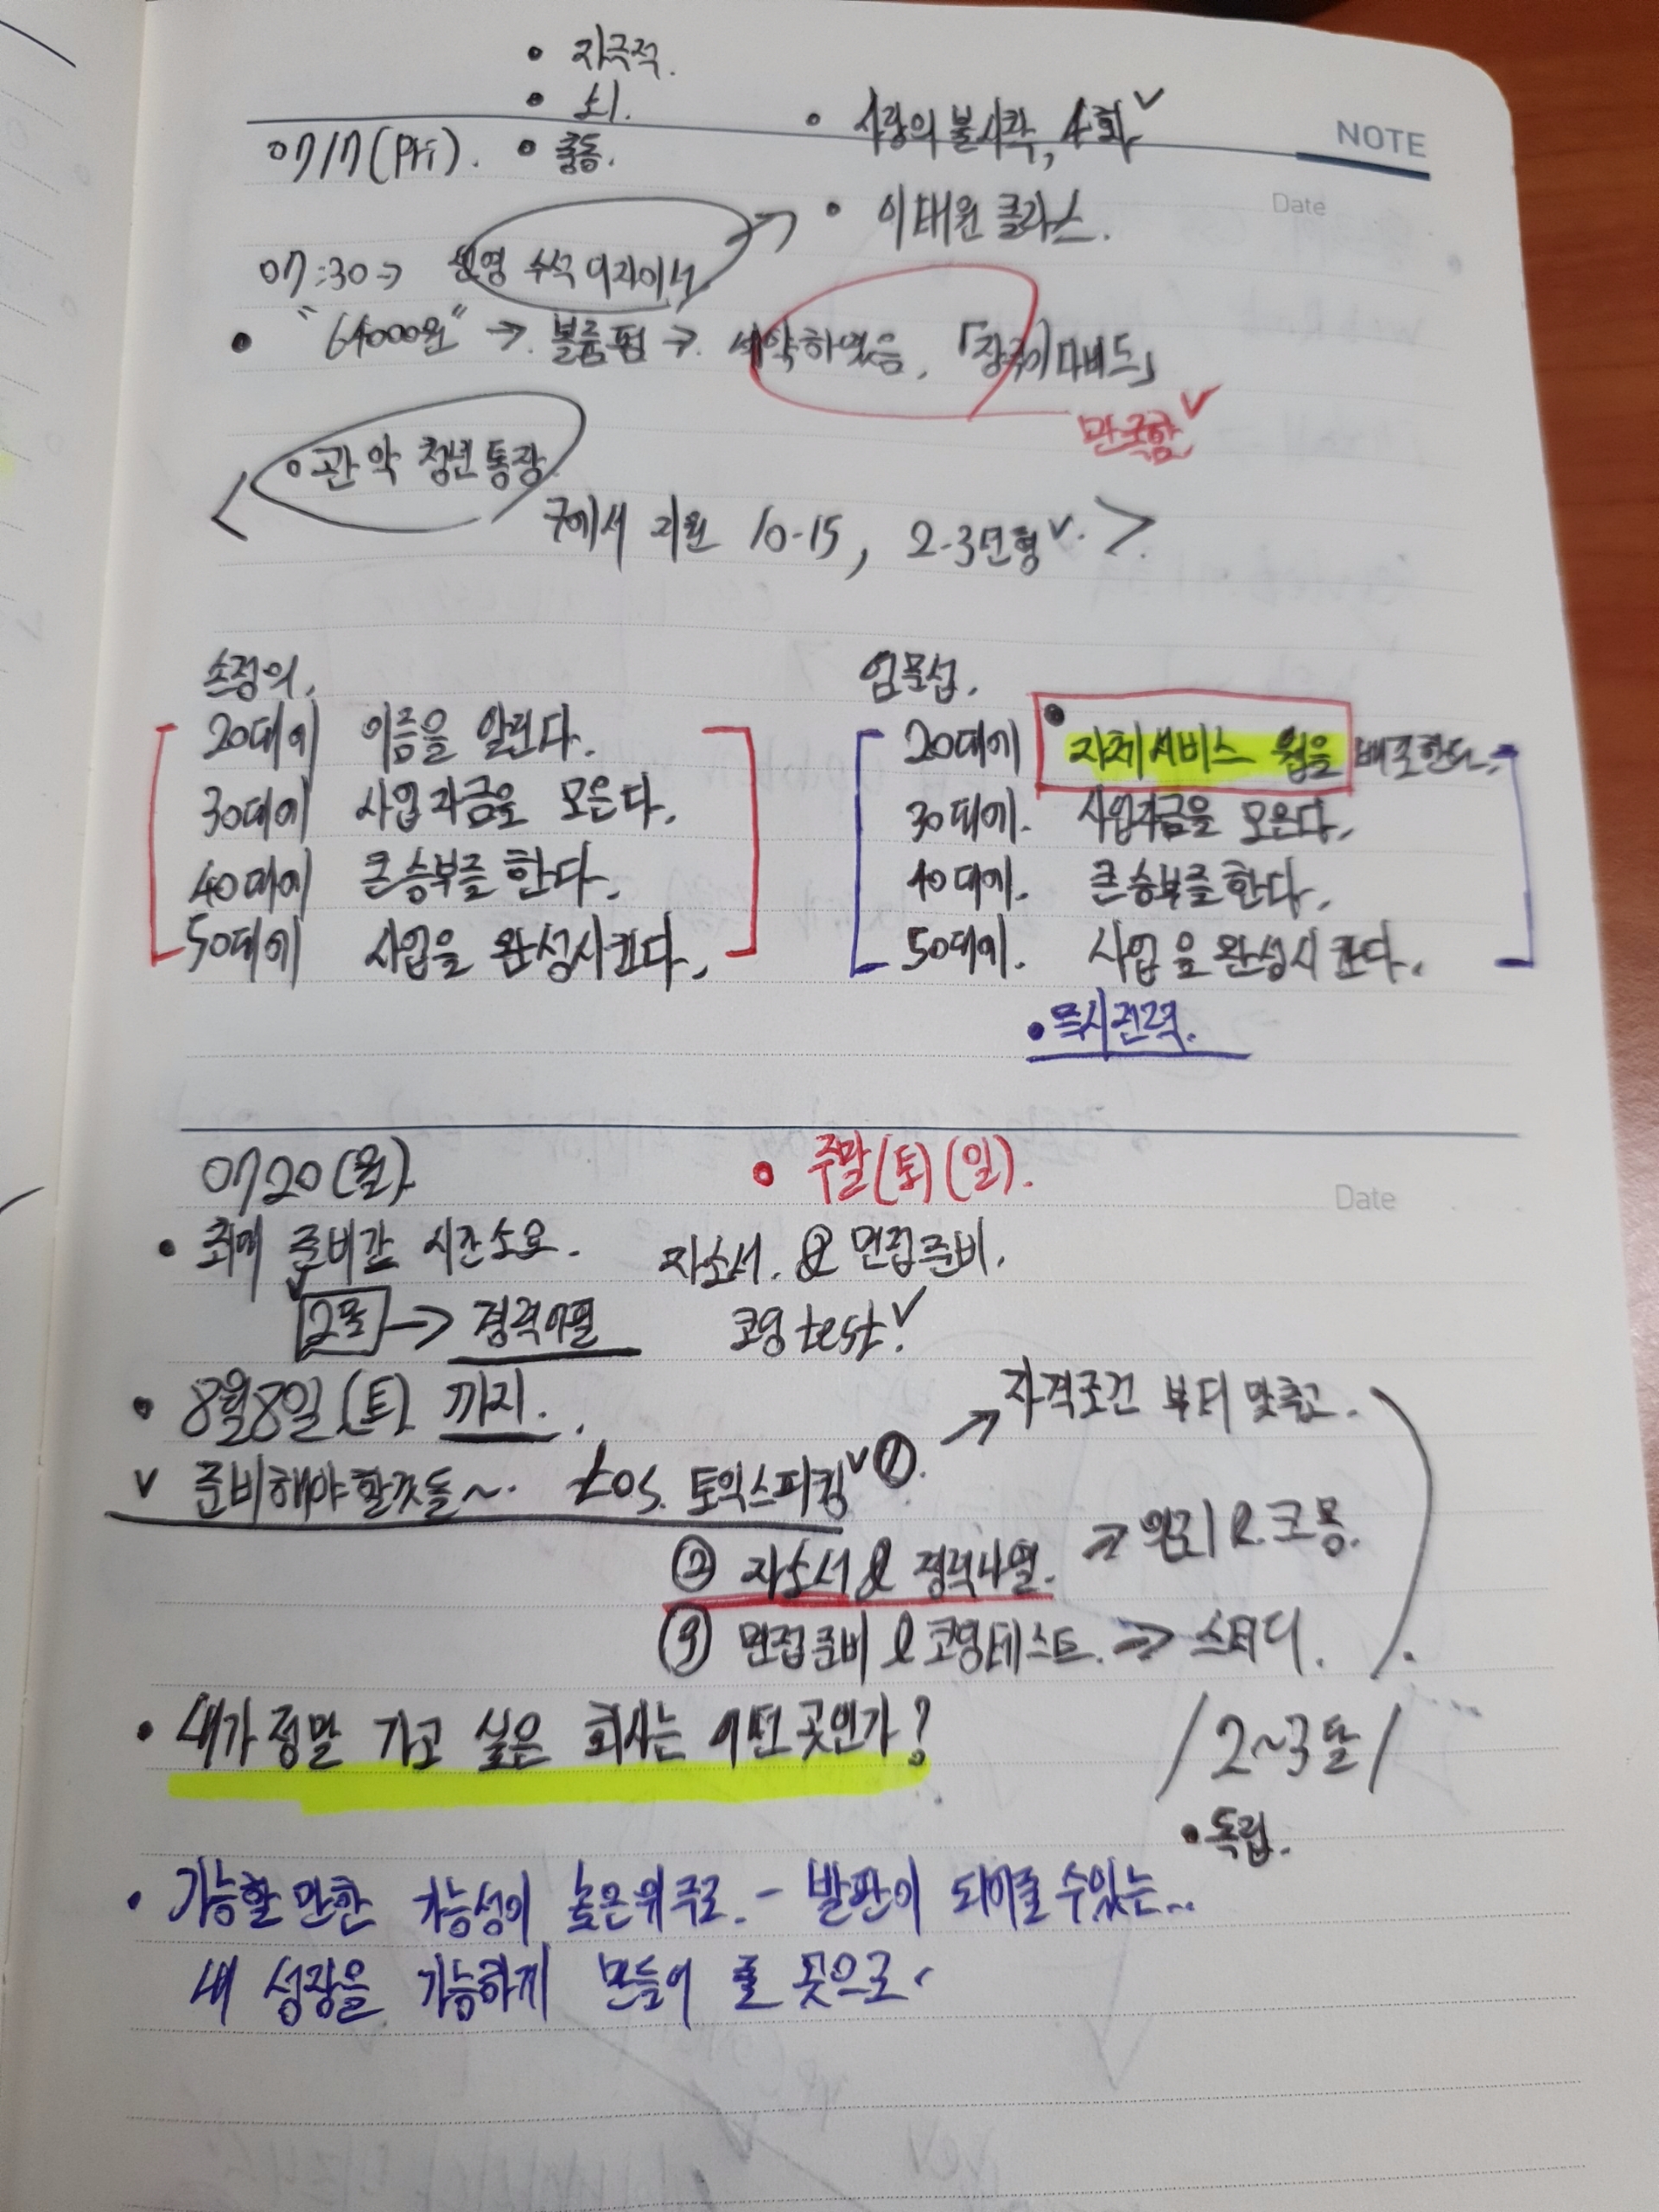 • 자극적.
• 뇌.
07/17(Fri). • 충동.
• 사랑의 불시착, 4회 ✓
NOTE
Date
• 이태원 클라스.
07:30 → 수석 디자이너
• "64000원" → 볼륨펌 → 예약하였음. 「장국이 다비드」
만족함 ✓
< • 관악 청년 통장
구에서 지원 10-15, 2-3년형 ✓. >
손정의.
20대에 이름을 알린다.
30대에 사업자금을 모은다.
40대에 큰 승부를 한다.
50대에 사업을 완성시킨다.
엄문섭.
20대에 • 자체서비스 웹을 배포한다.
30대에. 사업자금을 모은다.
40대에. 큰 승부를 한다.
50대에. 사업을 완성시킨다.
• 즉시전력.
Date
07 20 (월)
• 주말(토)(일).
• 최대 준비간 시간소요.
자소서. & 면접준비.
2주 → 경력어필
코딩 test ✓
• 8월8일(토) 까지.
→ 자격조건 부터 맞추고.
✓ 준비해야할것들~. 토익스피킹 ✓ ①.
② 자소서 & 경력나열. → & 크몽.
③ 면접준비 & 코딩테스트. → 스터디.
• 내가 정말 가고 싶은 회사는 어떤 곳인가?
/ 2~3달 /
• 독립.
• 가능할 만한 가능성이 높은 위주로. - 발판이 되어줄 수 있는...
내 성장을 가능하게 만들어 줄 곳으로.